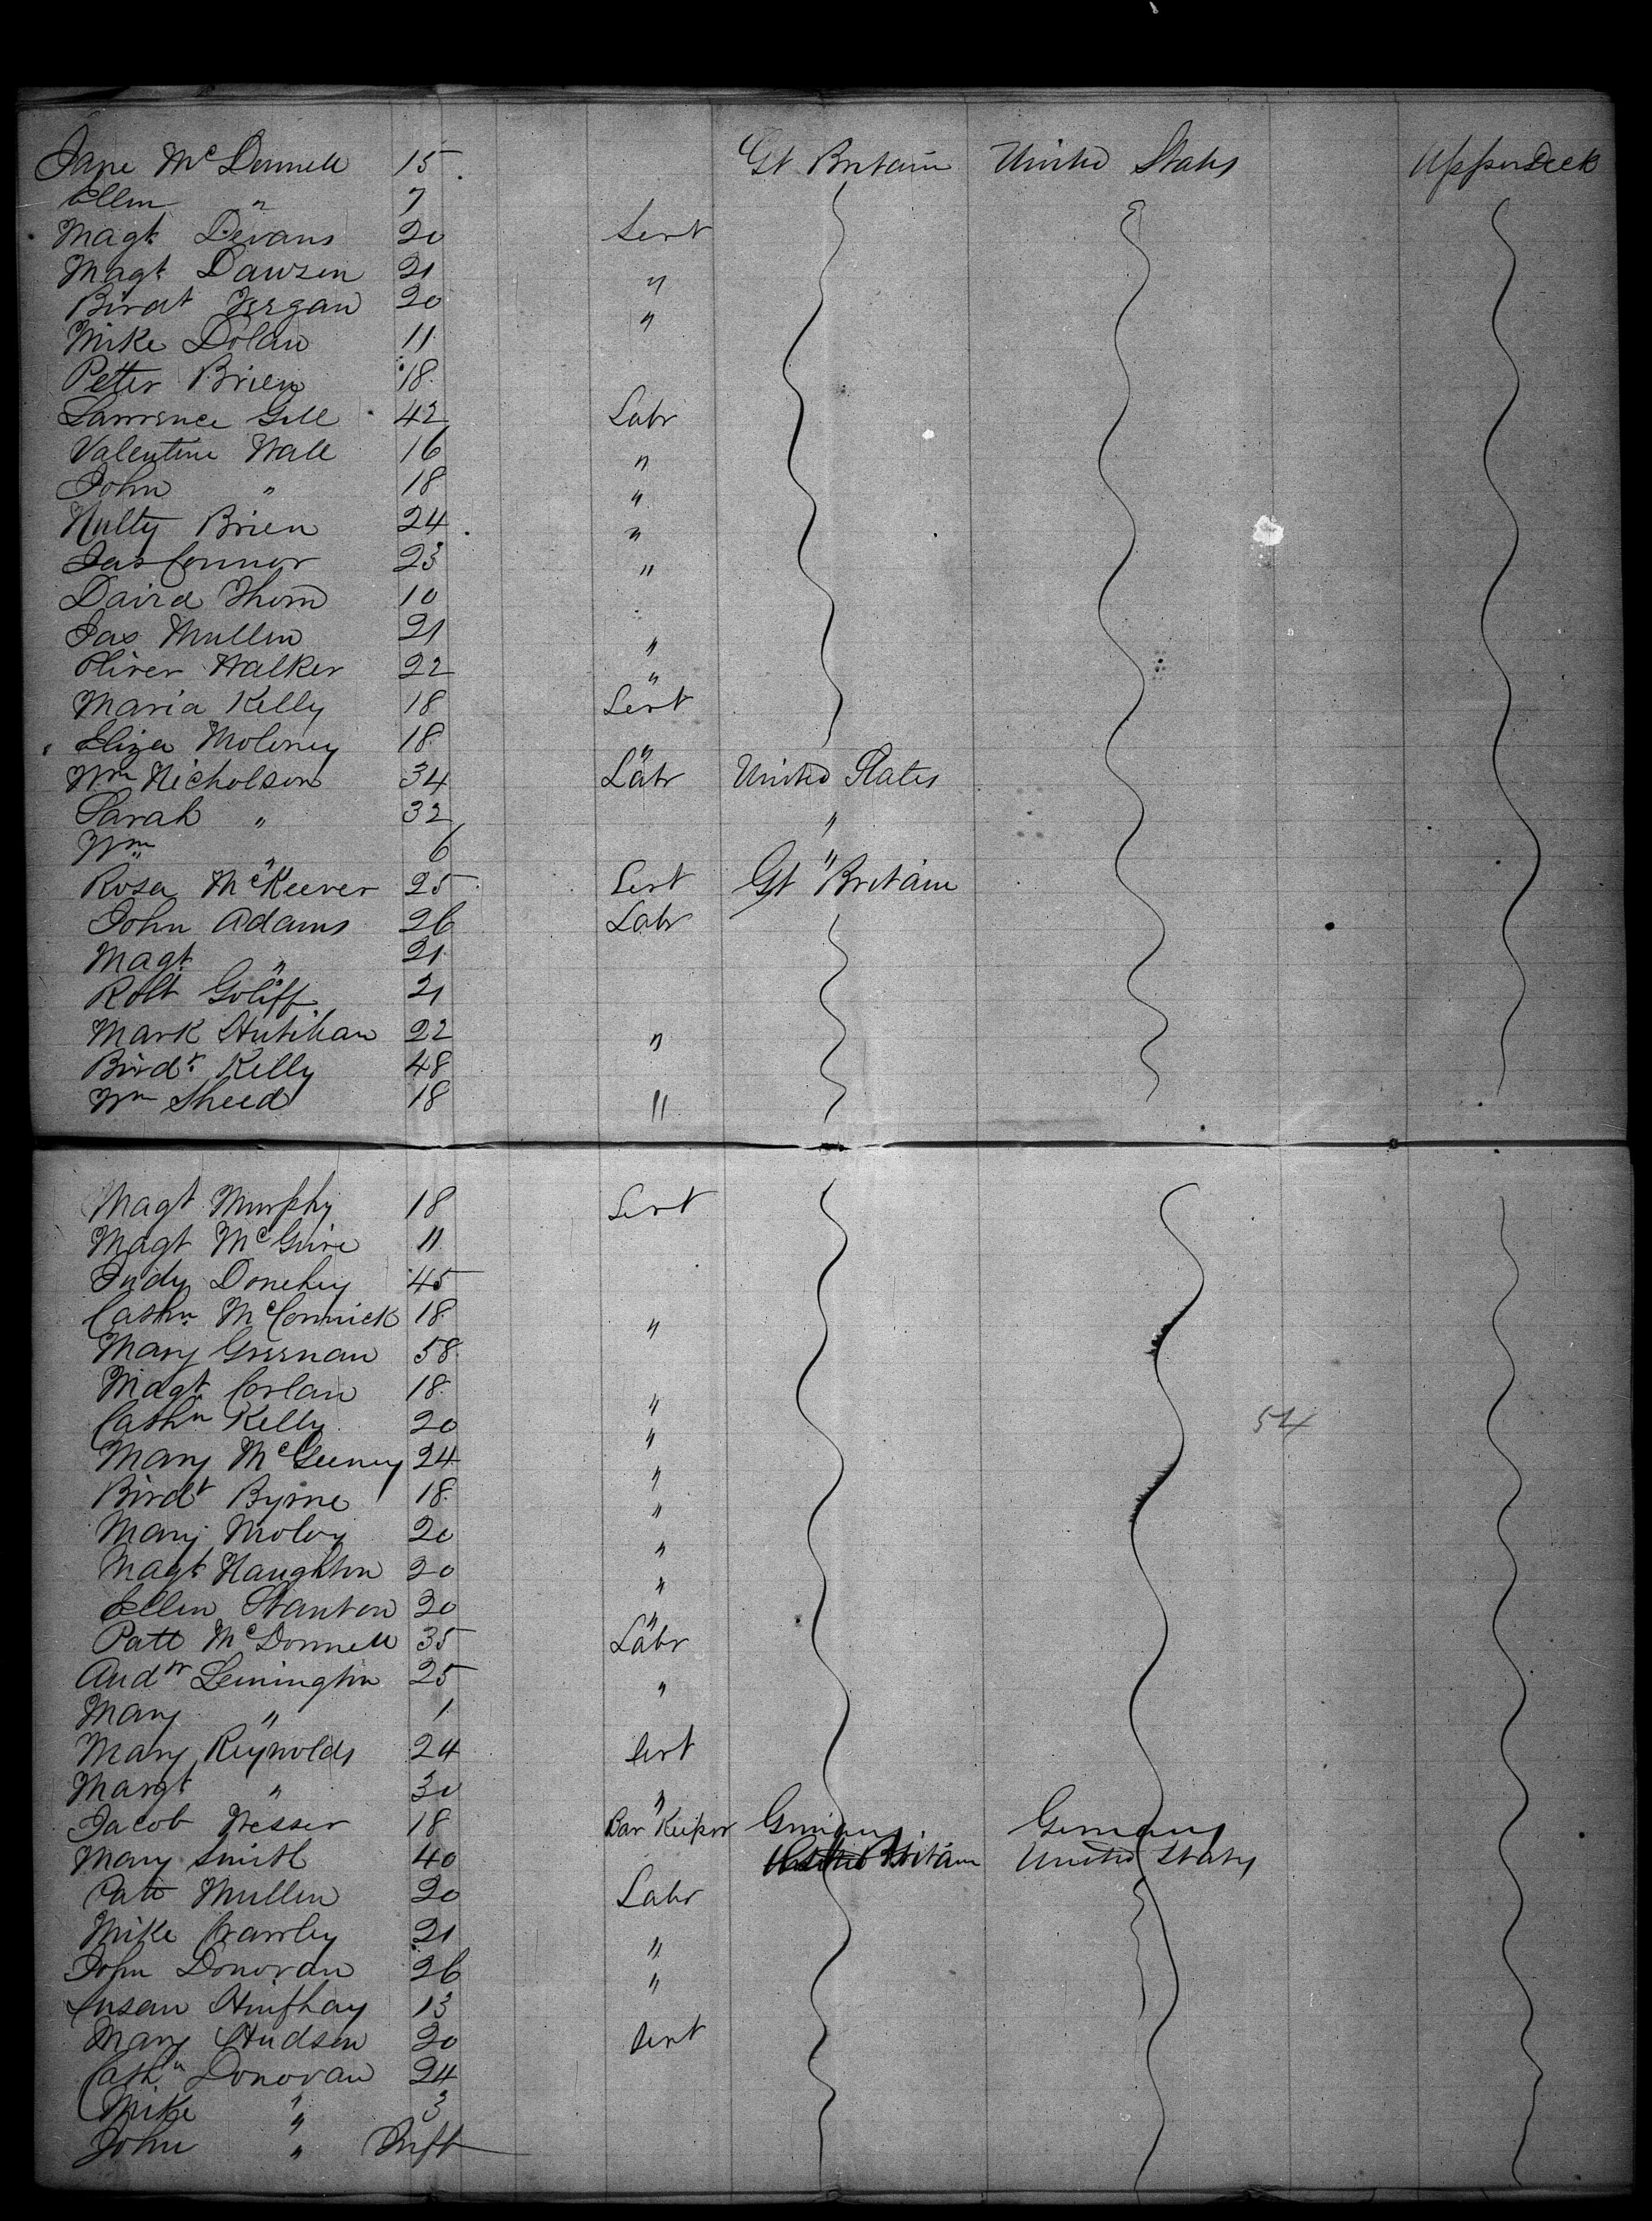 Jane McDonnell 15 Gt Britain United States Upper Deck
Ellen " 7
Magt Devans 20 Sert
Magt Dawson 21 "
Birdt Fergan 20 "
Mike Dolan 11
Petter Brien 18
Lawrence Gill 42 Labr
Valentine Wall 16 "
John " 18 "
Nulty Brien 24 "
Jas Connor 23 "
David Thom 10
Jas Mullin 21 "
Oliver Walker 22 "
Maria Kelly 18 Sert
Eliza Moloney 18 "
Wm Nicholson 34 Labr United States
Sarah " 32 "
Wm " 6 "
Rosa McKeever 25 Sert Gt Britain
John Adams 26 Labr
Magt " 21
Robt Goliff 21
Mark Hutihan 22 "
Birdt Kelly 48
Wm Sheed 18 "
Magt Murphy 18 Sert
Magt McGuire 11
Judy Donehey 45
Cathn McCormick 18 "
Mary Greenan 58
Magt Corlan 18 "
Cathn Kelly 20 " 54
Mary McGeeney 24 "
Birdt Byrne 18 "
Mary Moloy 20 "
Magt Naughton 20 "
Ellen Stanton 20 "
Patt McDonnell 35 Labr
Andw Leinington 25 "
Mary " 1
Mary Reynolds 24 Sert
Margt " 30 "
Jacob Nesser 18 Bar Keeper Germany Germany
Mary Smith 40 Britain United States
Patt Mullen 20 Labr
Mike Crawley 21 "
John Donovan 26 "
Susan 13
Mary Hudson 20 Sert
Cathn Donovan 24
Mike " 3
John " Inft